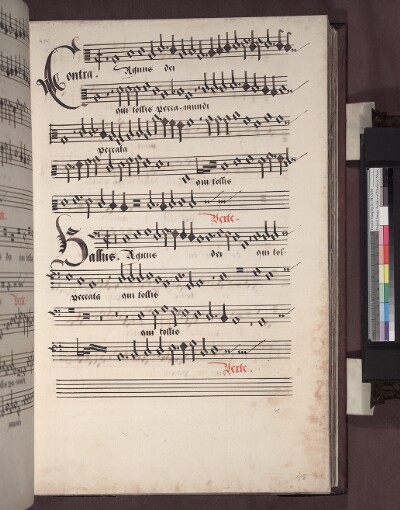 Contra. Agnus dei
qui tollis pecca. mundi
peccata
qui tollis
Verte.
Bassus. Agnus dei qui tol-
peccata qui tollis
qui tollis
Verte.